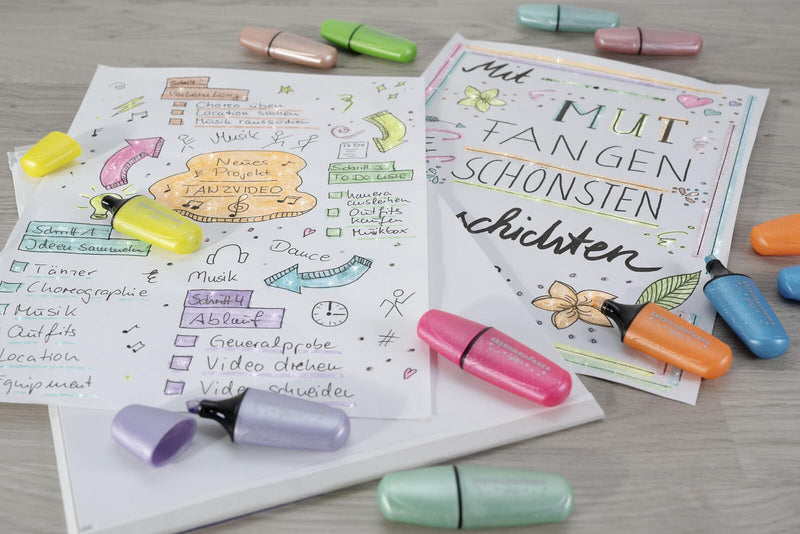 Schritt 2
Vorbereitung
Choreo üben
Location suchen
Musik raussuchen
Musik
Neues
Projekt
TANZVIDEO
To Do
Schritt 3
TO DO LISTE
Kamera
ausleihen
Outfits
kaufen
Musikbox
Schritt 1
Ideen Sammeln
Tänzer
Choreographie
Musik
Outfits
Location
Equipment
Dance
Musik
Schritt 4
Ablauf
Generalprobe
Video drehen
Video schneiden
#
Mit
MUT
FANGEN
SCHÖNSTEN
chichten
EBERHARD FABER